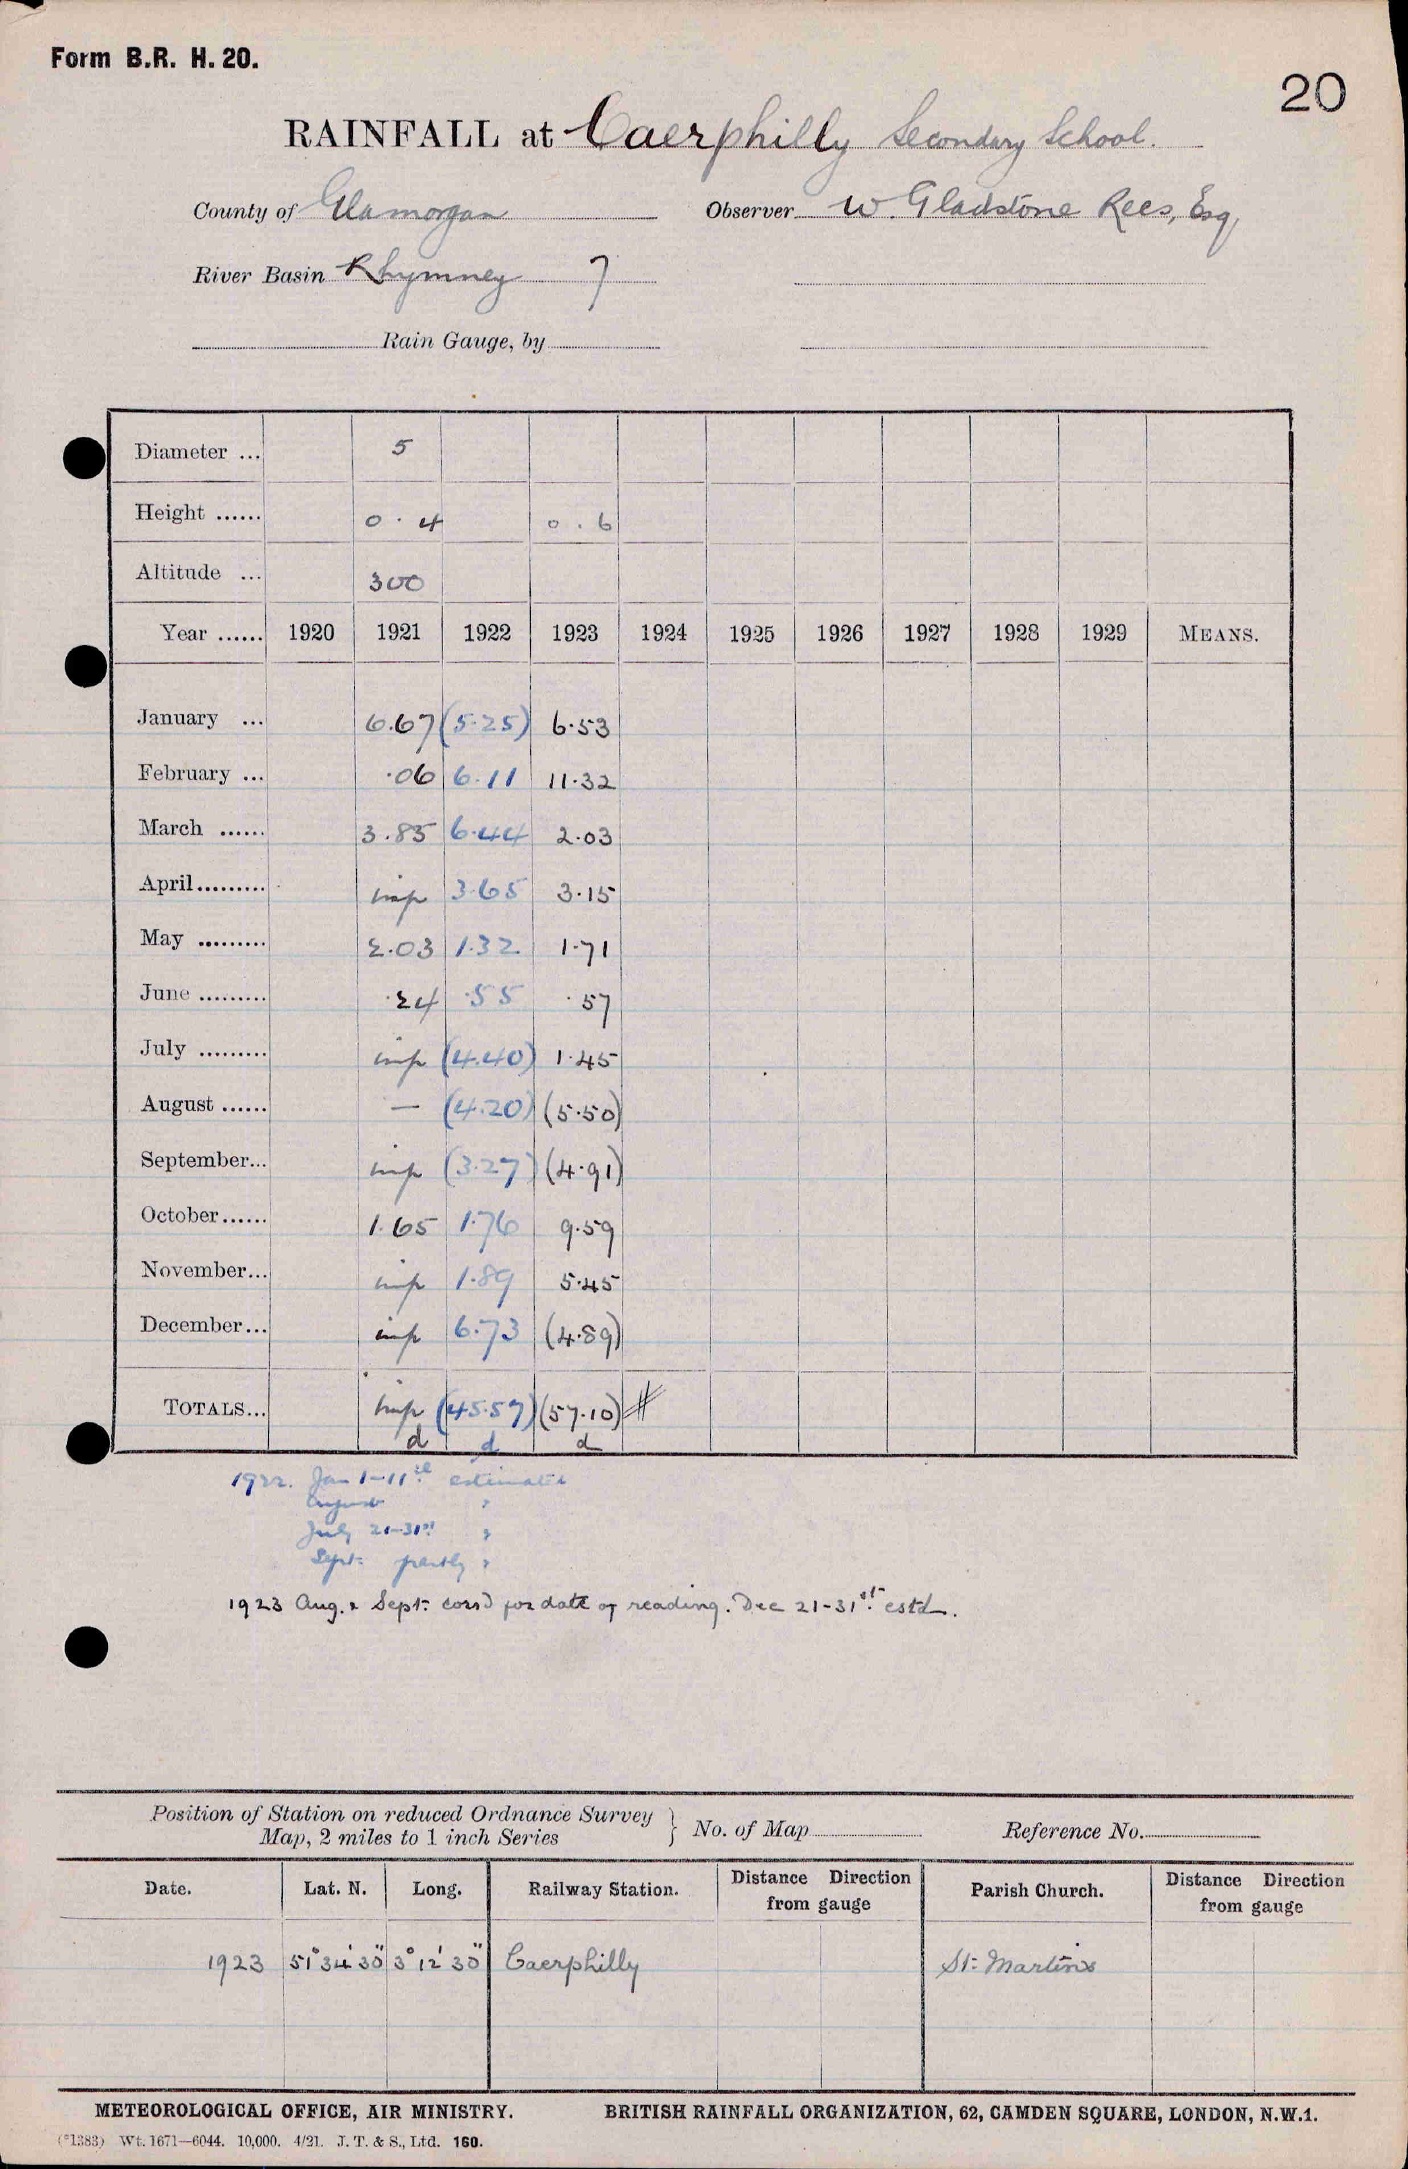 Form B.R. H. 20.
20
RAINFALL at Caerphilly Secondary School.
County of Glamorgan Observer W. Gladstone Rees, Esq,
River Basin Rhymney 7
Rain Gauge, by
Diameter ... 5
Height ...... 0.4 0.6
Altitude ... 300
Year ...... 1920 1921 1922 1923 1924 1925 1926 1927 1928 1929 MEANS.
January ... 6.67 (5.25) 6.53
February ... .06 6.11 11.32
March ...... 3.85 6.44 2.03
April......... imp 3.65 3.15
May ......... 2.03 1.32 1.71
June ......... .24 .55 .57
July ......... imp (4.40) 1.45
August ...... — (4.20) (5.50)
September... imp (3.27) (4.91)
October...... 1.65 1.76 9.59
November... imp 1.89 5.45
December... imp 6.73 (4.89)
TOTALS... imp (45.57) (57.10) #
d d d
1922. Jan 1-11th estimated
August "
July 21-31st "
Sept. partly "
1923 Aug. & Sept. corrd for date of reading. Dec 21-31st estd.
Position of Station on reduced Ordnance Survey
Map, 2 miles to 1 inch Series } No. of Map Reference No.
Date. Lat. N. Long. Railway Station. Distance Direction from gauge Parish Church. Distance Direction from gauge
1923 51° 34' 30" 3° 12' 30" Caerphilly St. Martins
METEOROLOGICAL OFFICE, AIR MINISTRY. BRITISH RAINFALL ORGANIZATION, 62, CAMDEN SQUARE, LONDON, N.W.1.
(*1383) Wt. 1671—6044. 10,000. 4/21. J. T. & S., Ltd. 160.